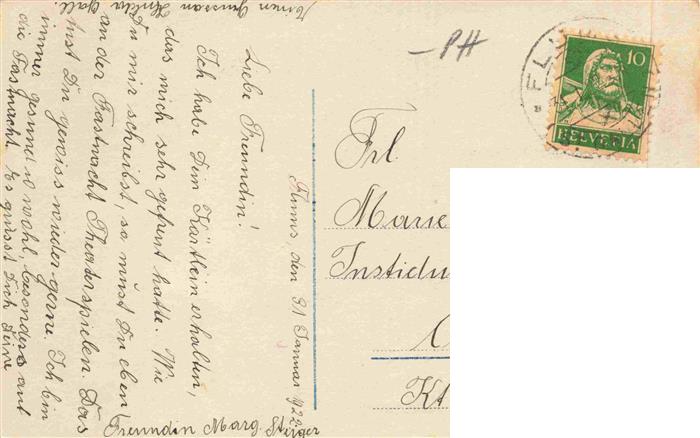 Flums, den 31 Januar 1922.
Liebe Freundin!
Ich habe Dein Kärtlein erhalten,
das mich sehr gefreut hatte. Wie
Du mir schreibst, so must Du eben
an der Fastnacht Theaterspielen. Das
tust Du gewiss wieder gerne. Ich bin
immer gesund u wohl, besonders auf
die Fastnacht. Es grüsst Dich Deine
Freundin Marg.
Gruss an
– PH
10
HELVETIA
Frl.
Marie
Institu
Kt